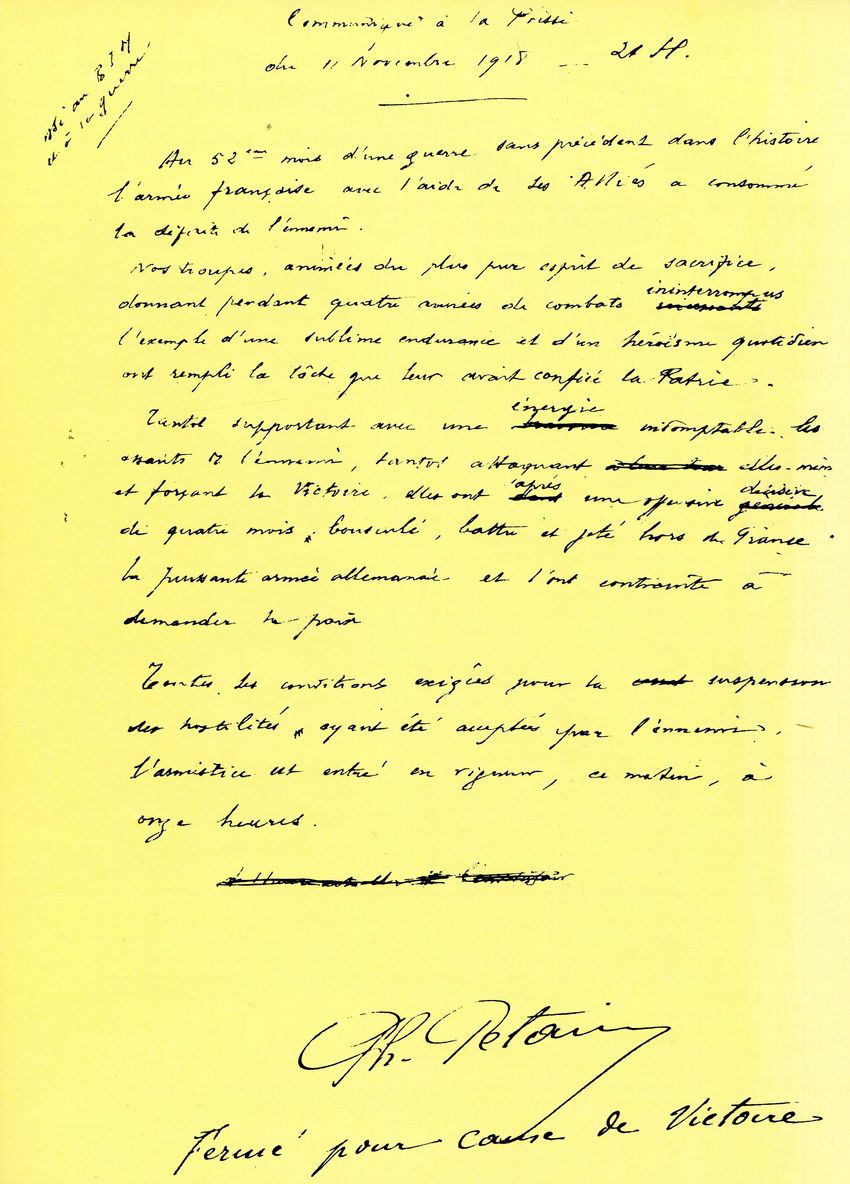 Communiqué à la Presse
du 11 Novembre 1918 — 21 H.
et à la guerre.
Au 52eme mois d'une guerre sans précédent dans l'histoire
l'armée française avec l'aide de ses Alliés a consommé
la défaite de l'ennemi.
Nos troupes, animées du plus pur esprit de sacrifice,
donnant pendant quatre années de combats ininterrompus
l'exemple d'une sublime endurance et d'un héroïsme quotidien
ont rempli la tâche que leur avait confiée la Patrie.
Tantôt supportant avec une énergie indomptable les
assauts de l'ennemi, tantôt attaquant elles-mêm
et forçant la Victoire, elles ont après une offensive décisive
de quatre mois, bousculé, battu et jeté hors de France
la puissante armée allemande et l'ont contrainte à
demander la paix
Toutes les conditions exigées pour la suspension
des hostilités, ayant été acceptées par l'ennemi,
l'armistice est entré en vigueur, ce matin, à
onze heures.
Ph. Pétain
Fermé pour cause de Victoire